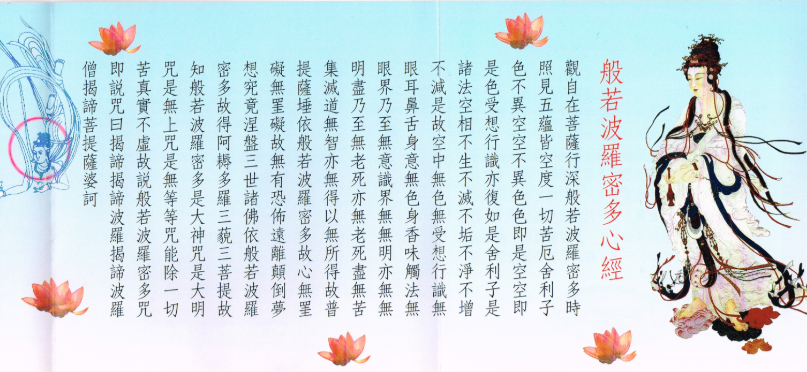 般若波羅密多心經
觀自在菩薩行深般若波羅密多時
照見五蘊皆空度一切苦厄舍利子
色不異空空不異色色即是空空即
是色受想行識亦復如是舍利子是
諸法空相不生不滅不垢不淨不增
不減是故空中無色無受想行識無
眼耳鼻舌身意無色身香味觸法無
眼界乃至無意識界無無明亦無無
明盡乃至無老死亦無老死盡無苦
集滅道無智亦無得以無所得故菩
提薩埵依般若波羅密多故心無罣
礙無罣礙故無有恐佈遠離顛倒夢
想究竟涅盤三世諸佛依般若波羅
密多故得阿耨多羅三藐三菩提故
知般若波羅密多是大神咒是大明
咒是無上咒是無等等咒能除一切
苦真實不虛故說般若波羅密多咒
即說咒曰揭諦揭諦波羅揭諦波羅
僧揭諦菩提薩婆訶